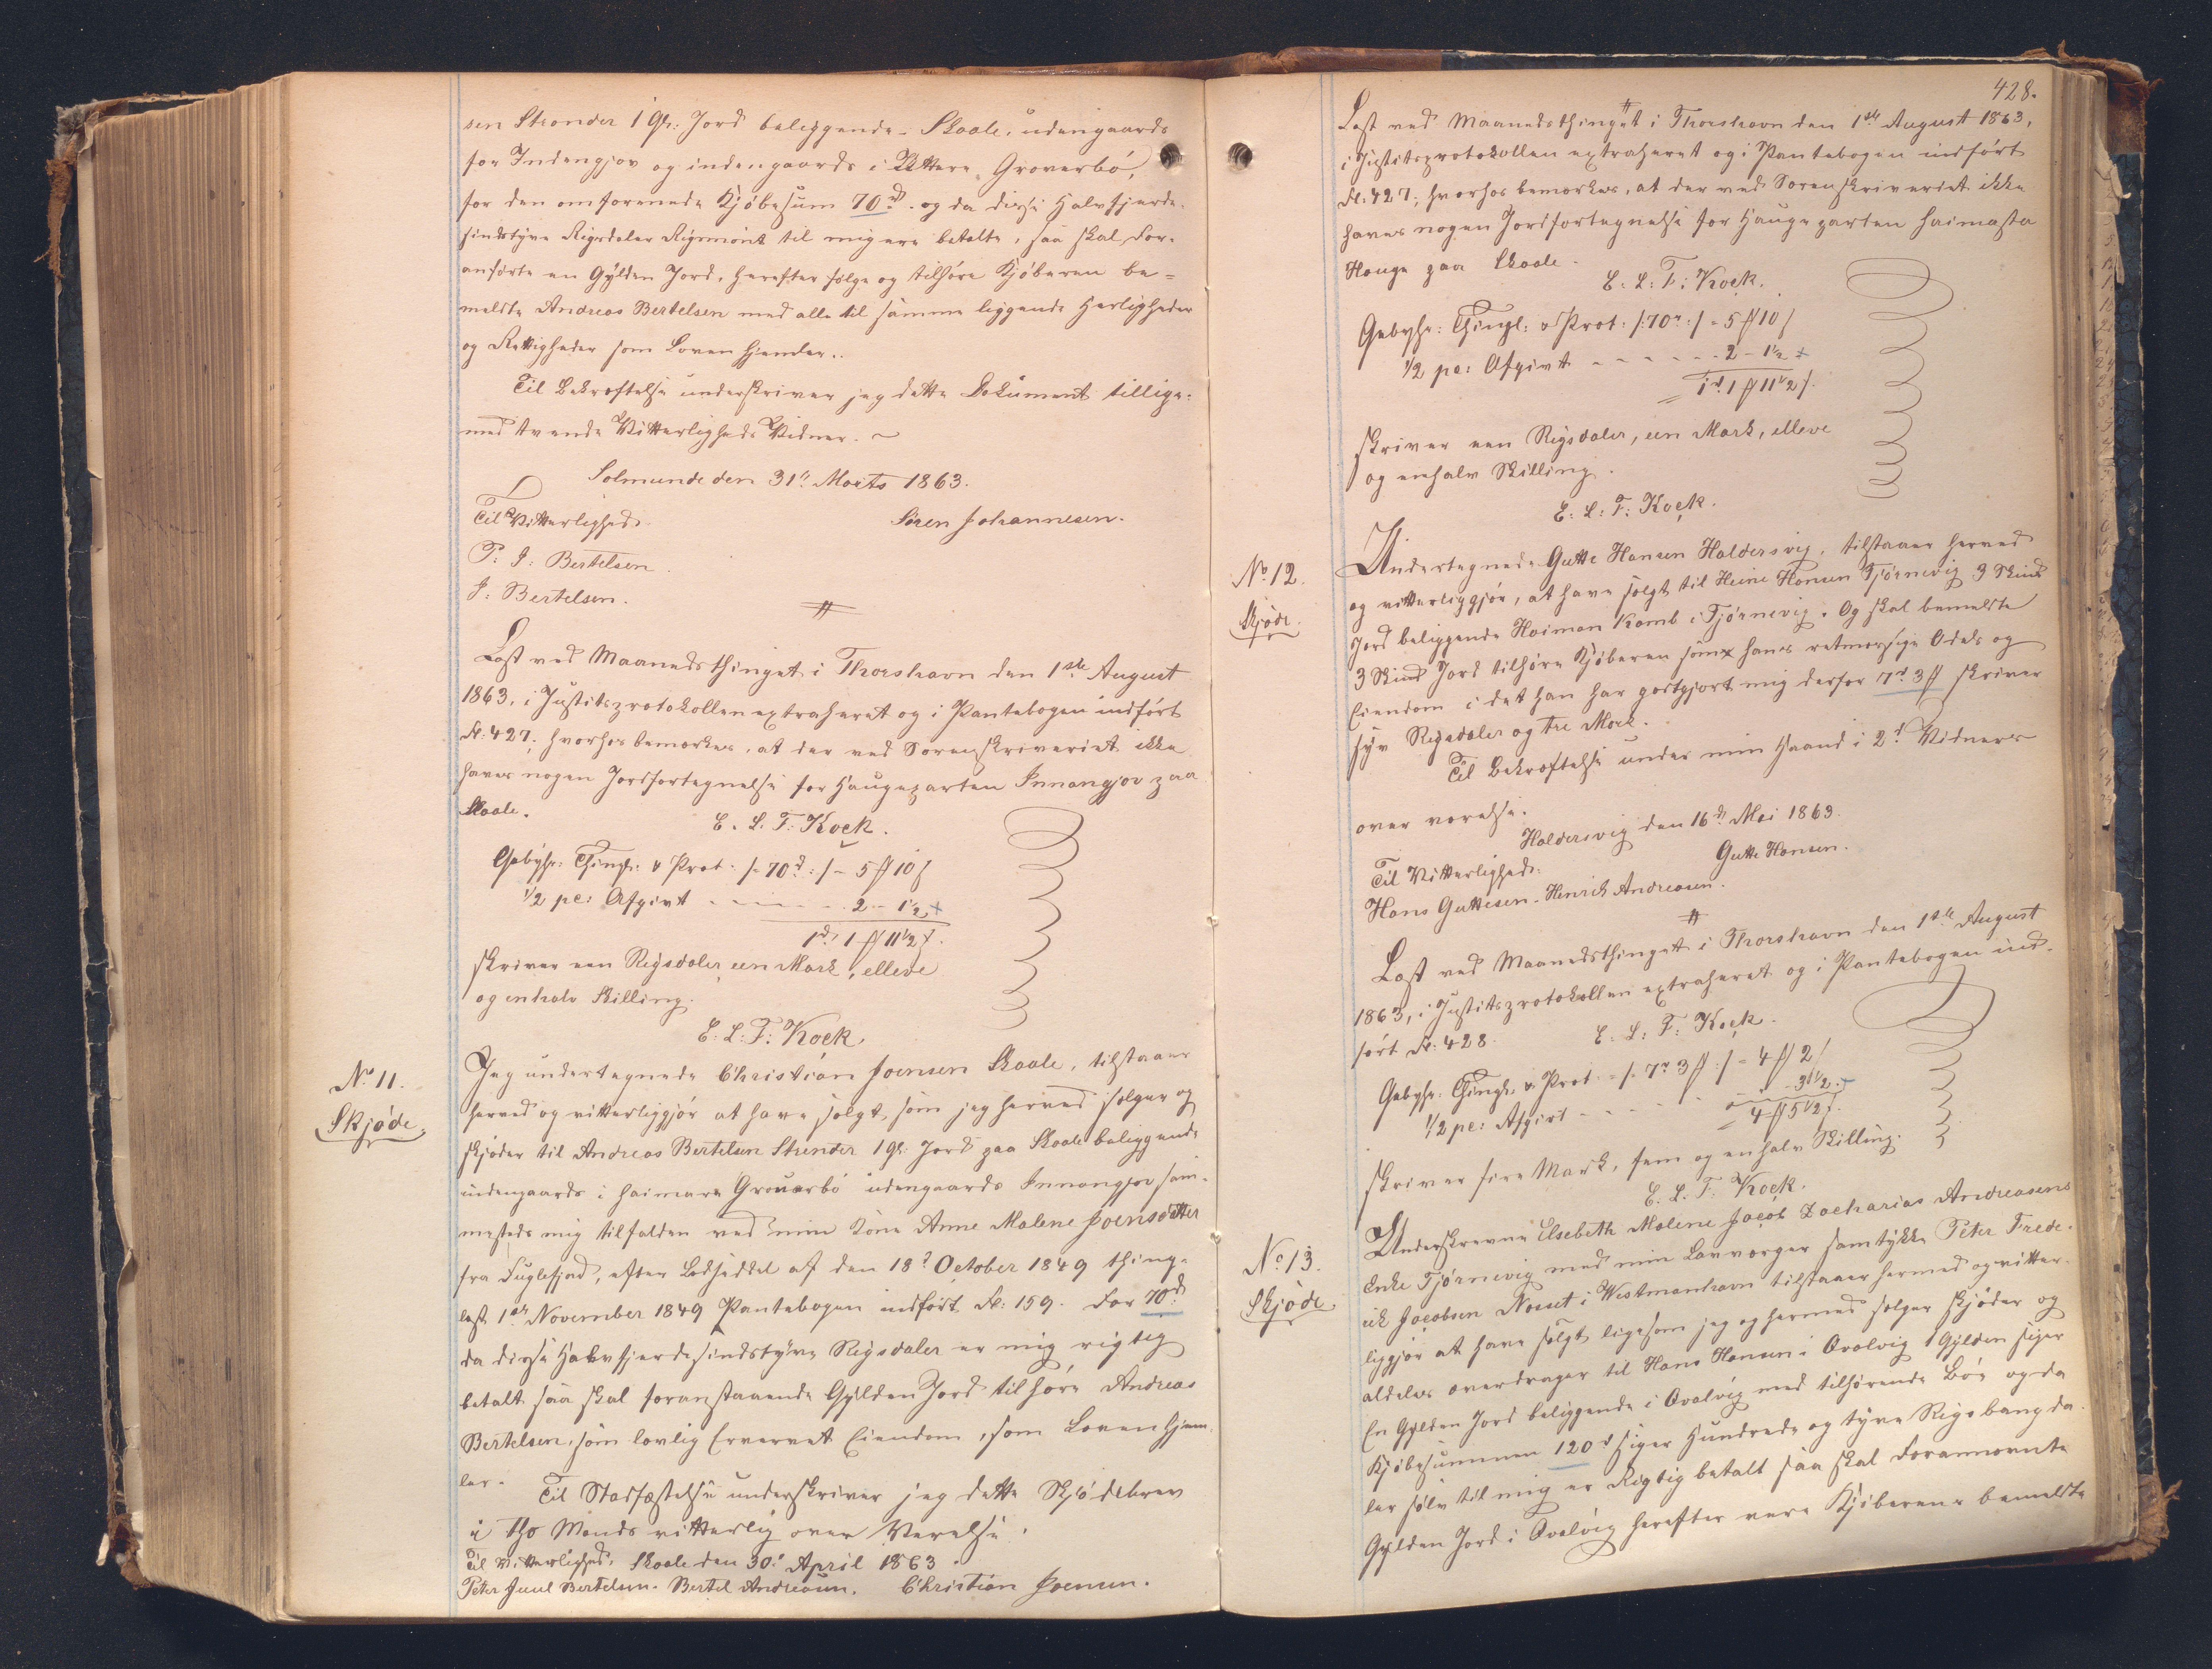 sen Stronder 1 Gl: Jord beliggende Skaale, udengaards
for Indengjov og indengaards i Groverbó,
for den omforenede Kjöbesum 70rd. og da disse Halvfjerde-
sindstyve Rigsdaler Rigsmönt til mig ere betalte, saa skal For-
anförte en Gylden Jord, herefter fölge og tilhöre Kjöberen be-
meldte Andreas Bertelsen med alle til samme liggende Herligheder
og Rettigheder som Loven hjemler.
Til Bekræftelse underskriver jeg dette Dokument tillige-
med tvende Vitterligheds Vidner.
Solmunde den 31te Marts 1863.
Til Vitterlighed. Sören Johannesen.
P: J: Bertelsen.
J: Bertelsen.
Læst ved Maanedsthinget i Thorshavn den 1ste August
1863, i Justitsprotokollen extraheret og i Pantebogen indfört
Fl: 427; hvorhos bemærkes, at der ved Sorenskriveriet ikke
haves nogen Jordfortegnelse for Haugeparten Innangjov paa
Skaale.
E. L. F: Kock.
Gebyhr: Thingl: & Prot: /: 70d :/ - 5 ß 10
1/2 pc: Afgivt - - - - 2 - 1 1/2
1d. 1 ß 11 1/2
skriver een Rigsdaler een Mark, elleve
og en halv Skilling.
E: L: F: Kock.
No 11.
Skjöde.
Jeg undertegnede Christian Joensen Skaale, tilstaaer
herved og vitterliggjör at have solgt, som jeg herved sælger og
skjöder til Andreas Bertelsen Strender 1 Gl: Jord paa Skaale beliggende
indengaards i haimara Grouarbó udengaards Innangjov sam-
mesteds mig tilfalden ved min Kone Anne Malene Joensdatter
fra Fuglefjord, efter Lodseddel af den 18d October 1849 thing-
læst 1ste November 1849 Pantebogen indfört Fl: 159. For 70d
da disse Halvfjerdesindstyve Rigsdaler er mig rigtig
betalt saa skal foranstaaende Gylden Jord tilhöre Andreas
Bertelsen, som lovlig Erhvervet Eiendom, som Loven hjem-
ler. Til Stadfæstelse underskriver jeg dette Skjödebrev
i tho Mænds vitterlig over Værelse.
Til Vitterlighed. Skaale den 30te April 1863.
Peter Juul Bertelsen. Bertel Andreasen. Christian Joensen.
428.
Læst ved Maanedsthinget i Thorshavn den 1ste August 1863,
i Justitsprotokollen extraheret og i Pantebogen indfört
Fl: 427; hvorhos bemærkes, at der ved Sorenskriveriet ikke
haves nogen Jordfortegnelse for Haugeparten haimasta
Hauge paa Skaale.
E. L. F: Kock.
Gebyhr: Thingl: & Prot: /: 70r :/ - 5 ß 10
1/2 pc: Afgivt - - - - 2 - 1 1/2
1d 1 ß 11 1/2
skriver een Rigsdaler, een Mark, elleve
og enhalv Skilling.
E: L: F: Kock.
No 12.
Skjöde.
Undertegnede Gutte Hansen Haldersvig, tilstaaer herved
og vitterliggjör, at have solgt til Heine Hansen Tjörnevig 3 Skind
Jord beliggende Haiman Kamb i Tjörnevig. Og skal bemeldte
3 Skind Jord tilhöre Kjöberen som hans retmæssige Odels og
Eiendom i det han har godtgjort mig derfor 7rd 3 ß skriver
syv Rigsdaler og tre Mark.
Til Bekræftelse under min Haand i 2d Vidners
over værelse.
Haldersvig den 16de Mai 1863.
Til Vitterlighed. Gutte Hansen.
Hans Guttesen. Henrik Andreasen.
Læst ved Maanedsthinget i Thorshavn den 1ste August
1863, i Justitsprotokollen extraheret og i Pantebogen ind-
fört Fl: 428. E: L: F: Kock.
Gebyhr: Thingl: & Prot - /: 7r 3 ß :/ - 4 ß 2
1/2 pc: Afgivt - - - - 3 1/2
4 ß 5 1/2
skriver fire Mark, fem og enhalv Skilling.
E. L. F: Kock.
No 13.
Skjöde
Underskrevne Elsebeth Malene Jacob Zacharias Andreasens
Enke Tjörnevig med min Lavværger samtykke Peter Frede-
rik Jacobsen Nesset i Westmanhavn tilstaaer hermed og vitter-
liggjör at have solgt ligesom jeg og hermed sælger skjöder og
aldeles overdrager til Hans Hansen i Qvalvig 1 Gylden siger
En Gylden Jord beliggende i Qvalvig med tilhörende Böe og da
Kjöbesummen 120d siger Hundrede og tyve Rigsbangda-
ler sölv til mig er Rigtig betalt saa skal Forannævnte
Gylden Jord i Qvalvig herefter være Kjöberens bemeldte